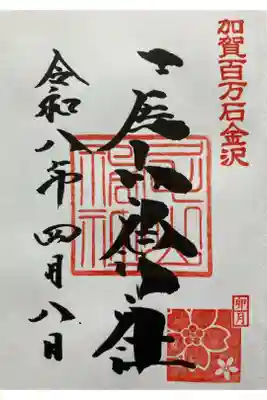 加賀百万石金沢
尾山神社
卯月
令和八年四月八日